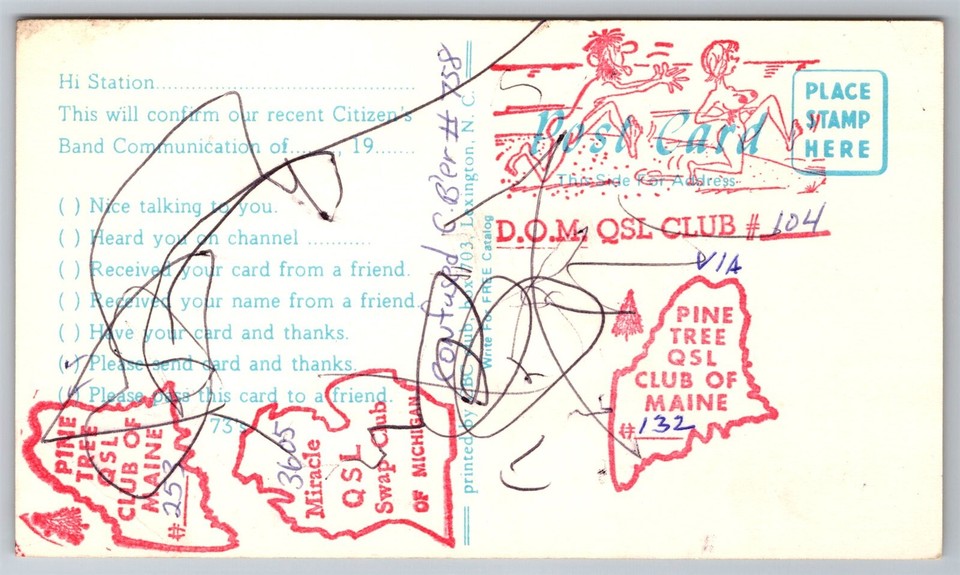 Hi Station
This will confirm our recent Citizen's
Band Communication of......., 19.......
( ) Nice talking to you.
( ) Heard you on channel
( ) Received your card from a friend.
( ) Received your name from a friend.
( ) Have your card and thanks.
(✓) Please send card and thanks.
( ) Please pass this card to a friend.
73's
PINE
TREE
QSL
CLUB OF
MAINE
#253
3605
Miracle
QSL
Swap Club
OF MICHIGAN
Confused CB'er # 738
printed by CBC Club, box 703, Lexington, N. C.
Write For FREE Catalog
Post Card
This Side For Address
PLACE
STAMP
HERE
D.O.M. QSL CLUB # 104
VIA
PINE
TREE
QSL
CLUB OF
MAINE
#132